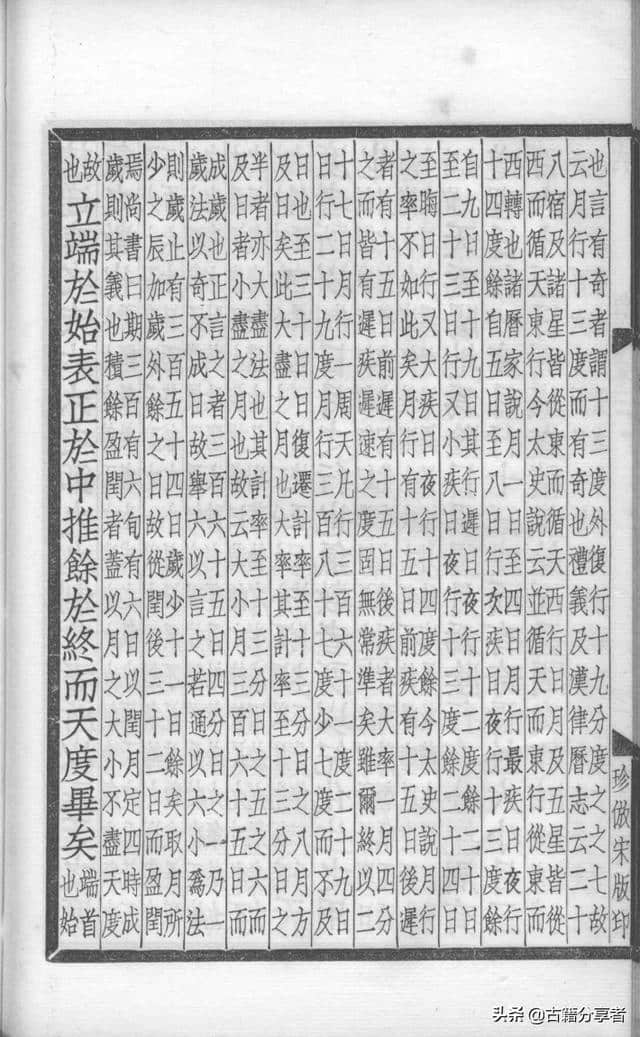 也言有奇者謂十三度外復行十九分度之七故
云月行十三度而有奇也禮義及漢律曆志云二十
八宿及諸星皆從東而循天西行日月及五星皆從
西而循天東行今太史說云並循天而東行從東而
西轉也諸曆家說月一日至四日月行最疾日夜行
十四度餘自五日至八日行次疾日夜行十三度餘
自九日至十九日其行遲日夜行十二度餘二十日
至二十三日行又小疾日夜行十三度餘二十四日
至晦日行又大疾日夜行十四度餘今太史說月行
之率不如此矣月行有十五日前疾有十五日後遲
者有十五日前遲有十五日後疾者大率一月四分
之而皆有遲疾遲速之度固無常準矣雖爾終以二
十七日月行一周天凡行三百六十一度二十九日
日行二十九度月行三百八十七度少七度而不及
日也至三十日日復遷計率至十三分日之八月方
及日矣此大盡之月也大率其計率至十三分日之
半者亦大盡法也其計率至十三分日之五之六而
及日者小盡之月也故云大小月三百六十五日而
成歲也正言之者三百六十五日四分日之一乃一
歲法以奇不成日故舉六以言之若通以六小爲法
則歲止有三百五十四日歲少十一日餘矣取月所
少之辰加歲外餘之日故從閏後三十二日而盈閏
焉尚書曰期三百有六旬有六日以閏月定四時成
歲則其義也積餘盈閏者蓋以月之大小不盡天度
故也立端於始表正於中推餘於終而天度畢矣端首也始
珍倣宋版印
头条@古籍分享者